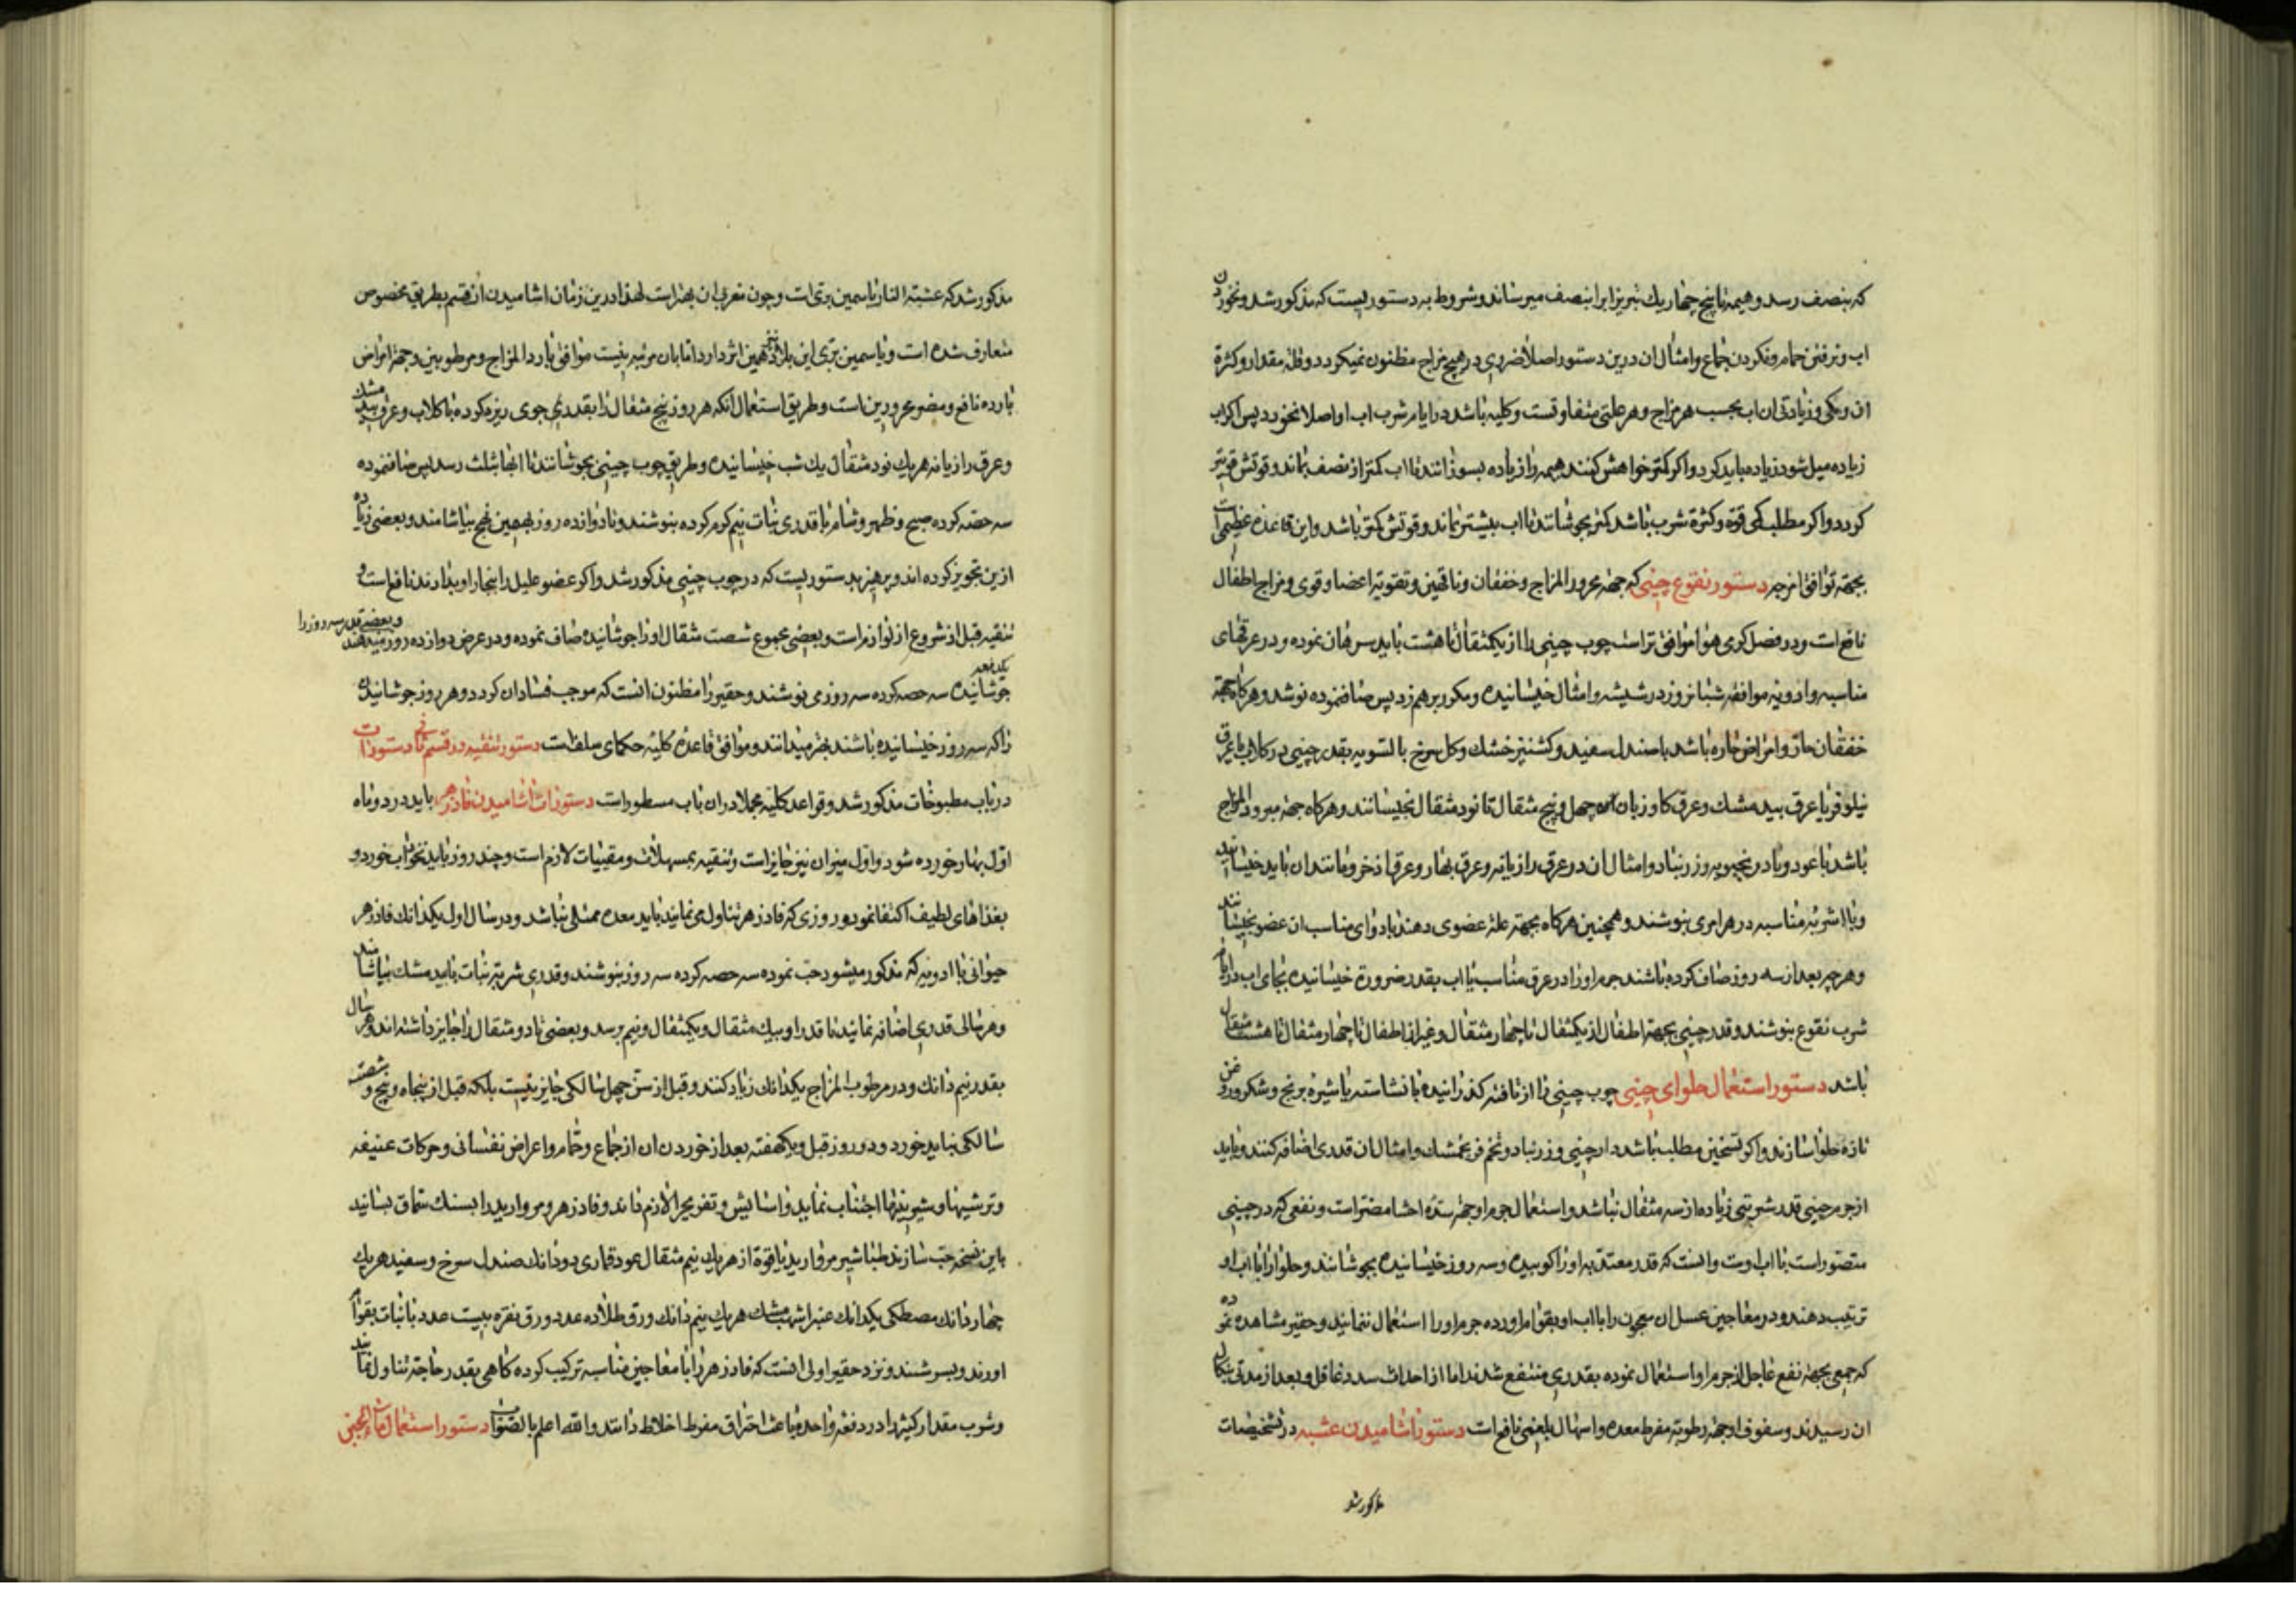 که بنصف رسد و هیمه تا پنج چهار یك تبریز ابرا بنصف میرساند و شروط به دستوریست که مذکور شد و نخوردن
اب و نرفتن حمام و نکردن جماع و امثال ان درین دستور اصلا ضروری در هیچ مزاج مظنون نمیکردد و قلة مقدار و کثرة
ان و کمی و زیادتی ان اب بحسب هر مزاج و هر علتی متفاوتست و کلیه باشد در ایام شرب اب او اصلا نخورد پس اکر اب
زیاده میل شود زیاده باید کرد و اکر کمتر خواهش کنند هیمه را زیاده بسوزانند تا اب کمتر از نصف بماند و قوتش قویتر
کردد و اکر مطلب کمی قوة و کثرة شرب باشد کمتر بجوشانند تا اب بیشتر بماند و قوتش کمتر باشد و این قاعده عظیمی است
بجهة توافق امزجه دستور نقوع چینی که جهة محرور المزاج و خفقان و ناقهین و تقویة اعضا و قوی و مزاج اطفال
نافع است و در فصل کرمی هوا موافق تر است چوب چینی را از یکمثقال تا هشت باید سوهان نموده و در عرقهای
مناسبه و ادویه موافقه شبانروز در شیشه و امثال خیسانیده و مکرر برهم زد پس صاف نموده نوشد و هرکاه جهة
خفقان حار و امراض حاره باشد با صندل سفید و کشنیز خشك و کل سرخ بالسویه بقدر چینی در کلاب یا عرق
نیلوفر یا عرق بید مشك و عرق کاوزبان از چهل و پنج مثقال تا نود مثقال بخیسانند و هرکاه جهة مبرود المزاج
باشد با عود و بادرنجبویه و زرنباد و امثال ان در عرق رازیانه و عرق بهار و عرق اذخر و مانند ان باید خیسانید
و با اشربه مناسبه در هر امری بنوشند و همچنین هرکاه بجهة علة عضوی دهند با دوای مناسب ان عضو بخیسانند
و هرچه بعد از سه روز صاف کرده باشند جرم او را در عرق مناسب یا اب بقدر ضرورة خیسانیده بجای اب در ایام
شرب نقوع بنوشند و قدر چینی بجهة اطفال از یکمثقال تا چهار مثقال و غیر از اطفال تا چهار مثقال تا هشت مثقال
باشد دستور استعمال حلوای چینی چوب چینی را از بافته کذرانیده با نشاسته یا شیره برنج و شکر و روغن
تازه حلوا سازند و اکر تسخین مطلب باشد دارچینی و زرنباد و تخم فرنجمشك و امثال ان قدری اضافه کنند و باید
از جرم چینی قدر شربتی زیاده از سه مثقال نباشد و استعمال جرم او جهة سدّه احشا مضر است و نفعی که در چینی
متصور است با اب اوست و انست که قدر معتد به او را کوبیده و سه روز خیسانیده بجوشانند و حلوا را با اب او
ترتیب دهند و در معاجین عسل ان معجون را با اب او بقوام اورده جرم او را استعمال ننمایند و حقیر مشاهده نموده
که جمعی بجهة نفع عاجل از جرم او استعمال نموده بقدری منتفع شدند اما از احداث سدد غافل و بعد از مدتی بنکال
ان رسیدند و سفوف او جهة رطوبة مفرط معده و اسهال بلغمی نافع است دستور اشامیدن عشبه در تشخیصات
مذکور شد
مذکور شد که عشبة النار یاسمین برّی است و چون مغربی ان بهتر است لهذا درین زمان اشامیدن ان قسم بطریق مخصوص
متعارف شده است و یاسمین برّی این بلاد نیز همین اثر دارد اما بان مرتبه نیست موافق بارد المزاج و مرطوبین و جهة امراض
بارده نافع و مضر محرورین است و طریق استعمال انکه هر روز پنج مثقال را بقدر جوی ریزه کرده با کلاب و عرق بید مشك
و عرق رازیانه هریك نود مثقال یك شب خیسانیده و طریق چوب چینی بجوشانند تا ابها بثلث رسد پس صاف نموده
سه حصه کرده صبح و ظهر و شام با قدری نبات نیم کرم کرده بنوشند و تا دوازده روز بهمین نهج بیاشامند و بعضی زیاده
ازین تجویز کرده اند و پرهیز بدستوریست که در چوب چینی مذکور شد و اکر عضو علیل را ببخار او بدارند نافع است و
تنقیه قبل از شروع از لوازم است و بعضی مجموع شصت مثقال او را جوشانیده صاف نموده و در عرض دوازده روز میدهند و بعضی قدر سه روز را
یکدفعه جوشانیده سه حصه کرده سه روزی نوشند و حقیر را مظنون انست که موجب فساد ان کردد و هر روز جوشانیدن
را که سه روز خیسانیده باشند بهتر میدانند و موافق قاعده کلیه حکمای سلف است دستور تنقیه در قسم ثانی دستورات
در باب مطبوخات مذکور شد و قواعد کلیه مجملا در ان باب مسطور است دستورات اشامیدن فادزهر باید در دو ماه
اول بهار خورده شود و اول میزان نیز جایز است و تنقیه بمسهلات و مقییات لازم است و چند روز باید نخواب خورد و
بغذاهای لطیف اکتفا نمود و روزی که فادزهر تناول می نمایند باید معده ممتلی نباشد و در سال اول یکدانك فادزهر
حیوانی با ادویه که مذکور میشود حب نموده سه حصه کرده سه روز بنوشند و قدری شربة نبات با بید مشك بیاشامند
و هر سالی قدری اضافه نمایند تا قدر او بیك مثقال و یکمثقال و نیم برسد و بعضی تا دو مثقال را جایز داشته اند و هر سال
بقدر نیم دانك و در مرطوب المزاج یکدانك زیاد کنند و قبل از سن چهل سالکی جایز نیست بلکه قبل از پنجاه و پنج و شصت
سالکی نباید خورد و دو روز قبل و یکهفته بعد از خوردن ان از جماع و حمام و اعراض نفسانی و حرکات عنیفه
و ترشیها و شیرینیها اجتناب نماید و اسایش و تفریح را لازم داند و فادزهر و مروارید را بسنك سماق بسایند
باین نسخه حب سازند طباشیر مروارید یاقوة از هریك نیم مثقال عود قماری دو دانك صندل سرخ و سفید هریك
چهار دانك مصطکی یکدانك عنبر اشهب مشك هریك نیم دانك ورق طلا ده عدد ورق نقره بیست عدد با نبات بقوام
اورند و بسرشند و نزد حقیر اولی انست که فادزهر را با معاجین مناسبه ترکیب کرده کاهی بقدر حاجة تناول نمایند
و شرب مقدار کثیر را در دفعه واحده باعث احتراق مفرط اخلاط دانند والله اعلم بالصواب دستور استعمال ماء الجبن